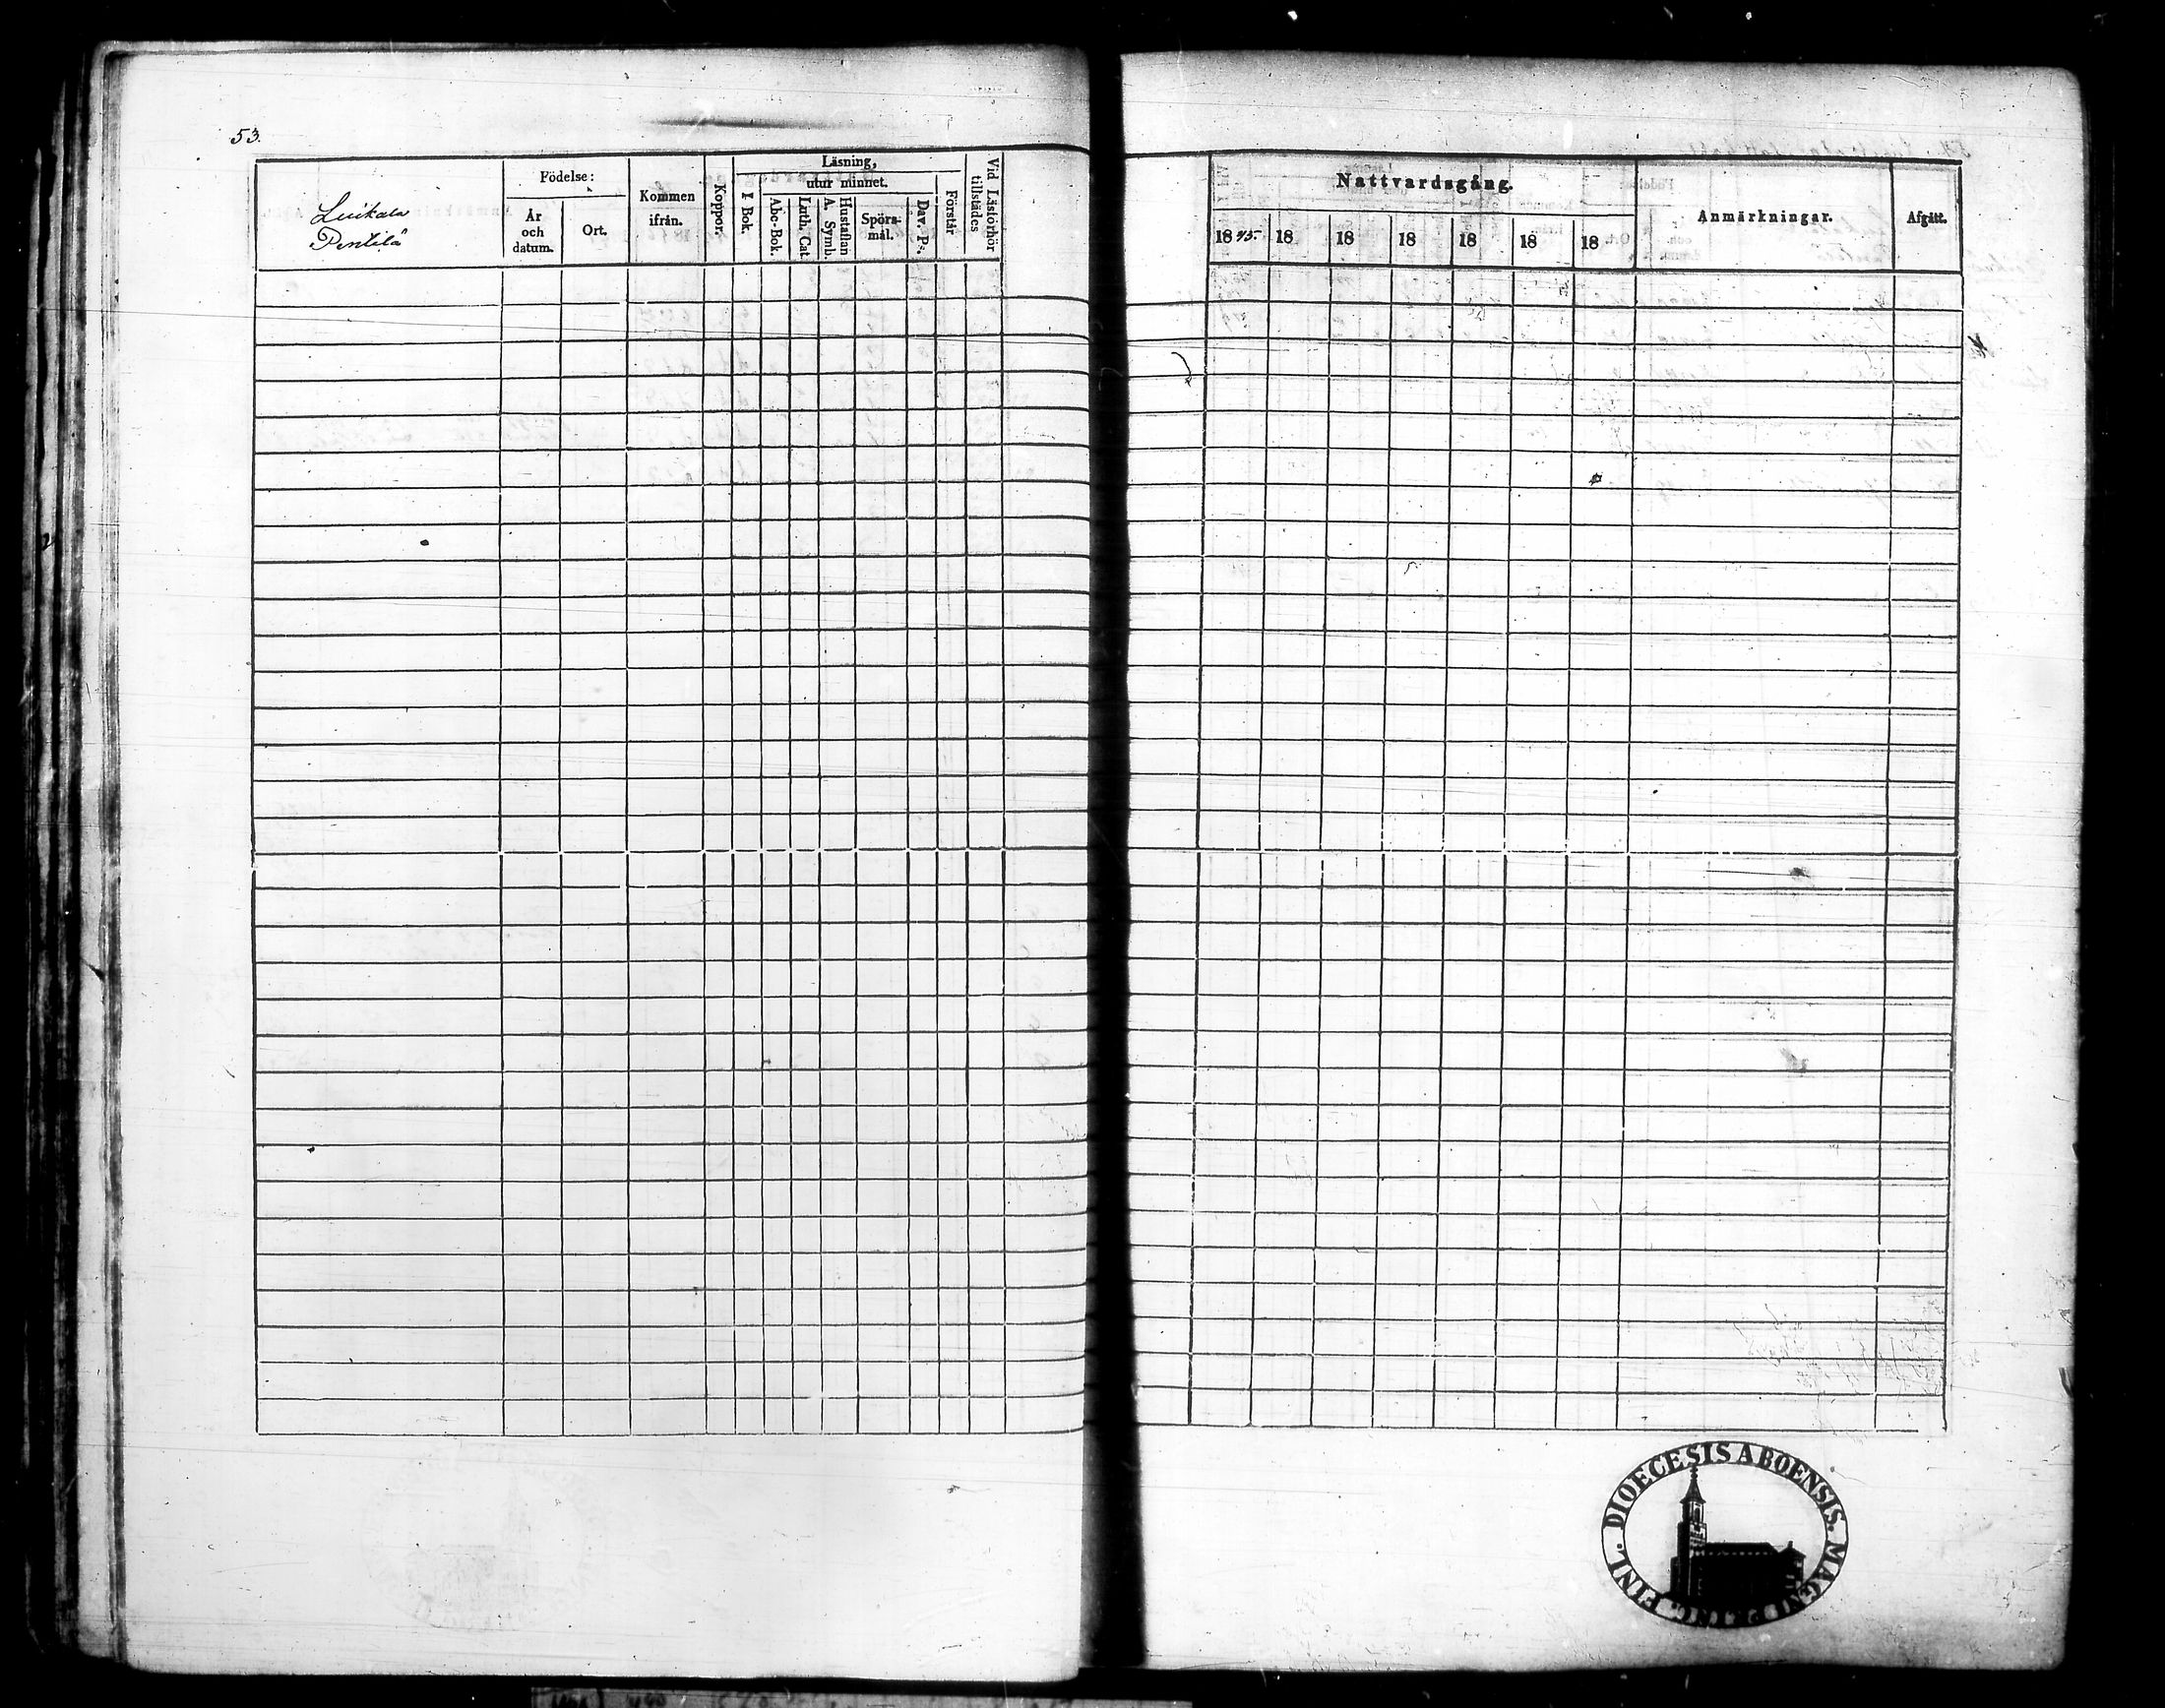 53.
Luikala
Pentilä
Födelse:
År och datum.
Ort.
Kommen ifrån.
Koppor.
Läsning,
utur minnet.
I Bok.
Abc-Bok.
Luth. Cat
A. Symb.
Hustaflan
Spörs-mål.
Dav. Ps.
Förstår
Vid Läsförhör tillstädes
Nattvardsgång.
1845. 18 18 18 18 18 18
Anmärkningar.
Afgått.
DIOECESIS ABOENSIS. MAGNI
FINL.